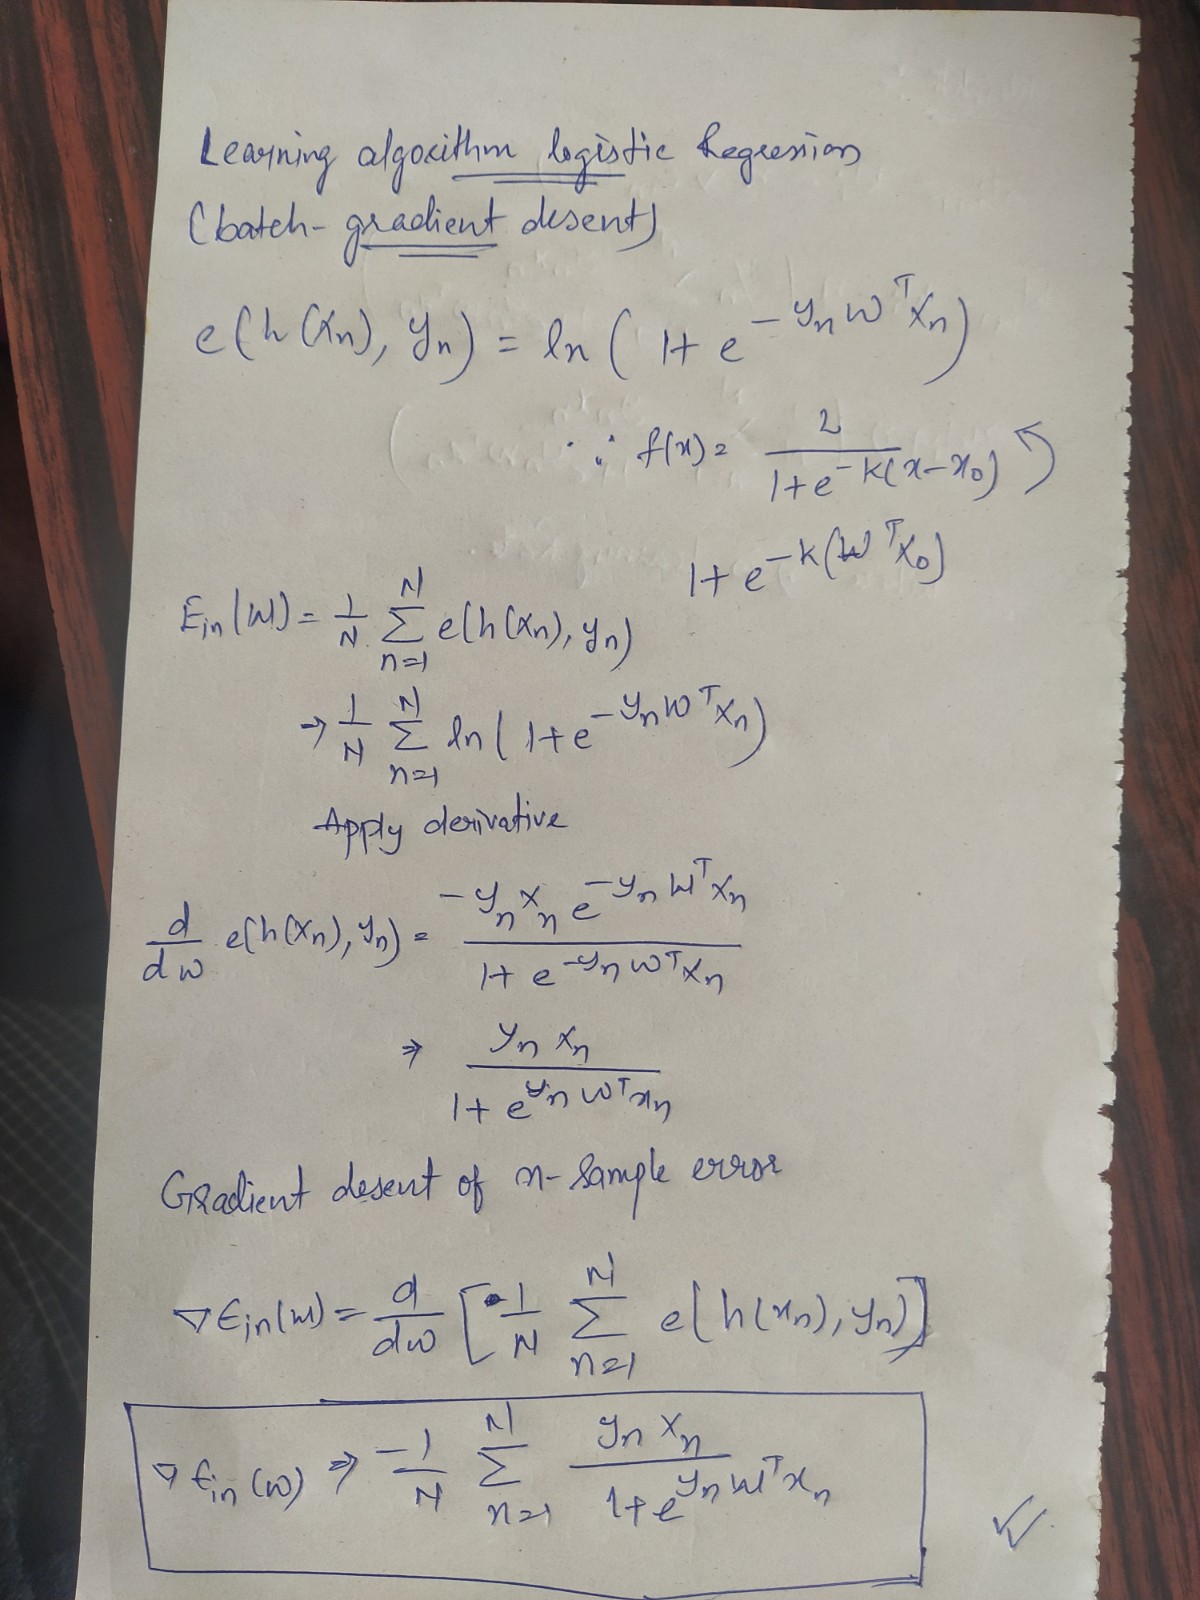 Learning algorithm logistic Regression
(batch-gradient desent)
e(h(xn), yn) = ln(1+e^{-yn w^T xn})
∵ f(x) = L/(1+e^{-k(x-x0)})
1+e^{-k(w^T x0)}
Ein(w) = 1/N Σ_{n=1}^{N} e(h(xn), yn)
⇒ 1/N Σ_{n=1}^{N} ln(1+e^{-yn w^T xn})
Apply derivative
d/dw e(h(xn), yn) = -yn xn e^{-yn w^T xn}/(1+e^{-yn w^T xn})
⇒ yn xn/(1+e^{yn w^T xn})
Gradient desent of n-sample error
∇Ein(w) = d/dw [1/N Σ_{n=1}^{N} e(h(xn), yn)]
∇Ein(w) ⇒ -1/N Σ_{n=1}^{N} yn xn/(1+e^{yn w^T xn})